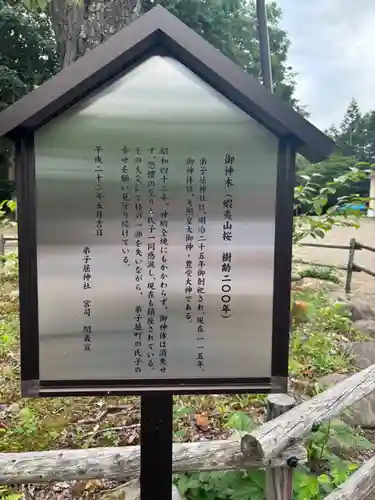 御神木(蝦夷山桜 樹齢二〇〇年)
弟子屈神社は、明治二十五年御創祀され、現在一一五年。
御神体は、天照皇大御神・豊受大神である。
昭和四十三年、神殿全焼にもかかわらず、御神体は焼失せ
ず、恐懼の至りと氏子一同感涙し、現在も鎮座されている。
その火災により樹木の一部を失いながら、弟子屈町の氏子の
幸せを願い見守り続けている。
平成二十二年五月吉日
弟子屈神社 宮司 関義宣